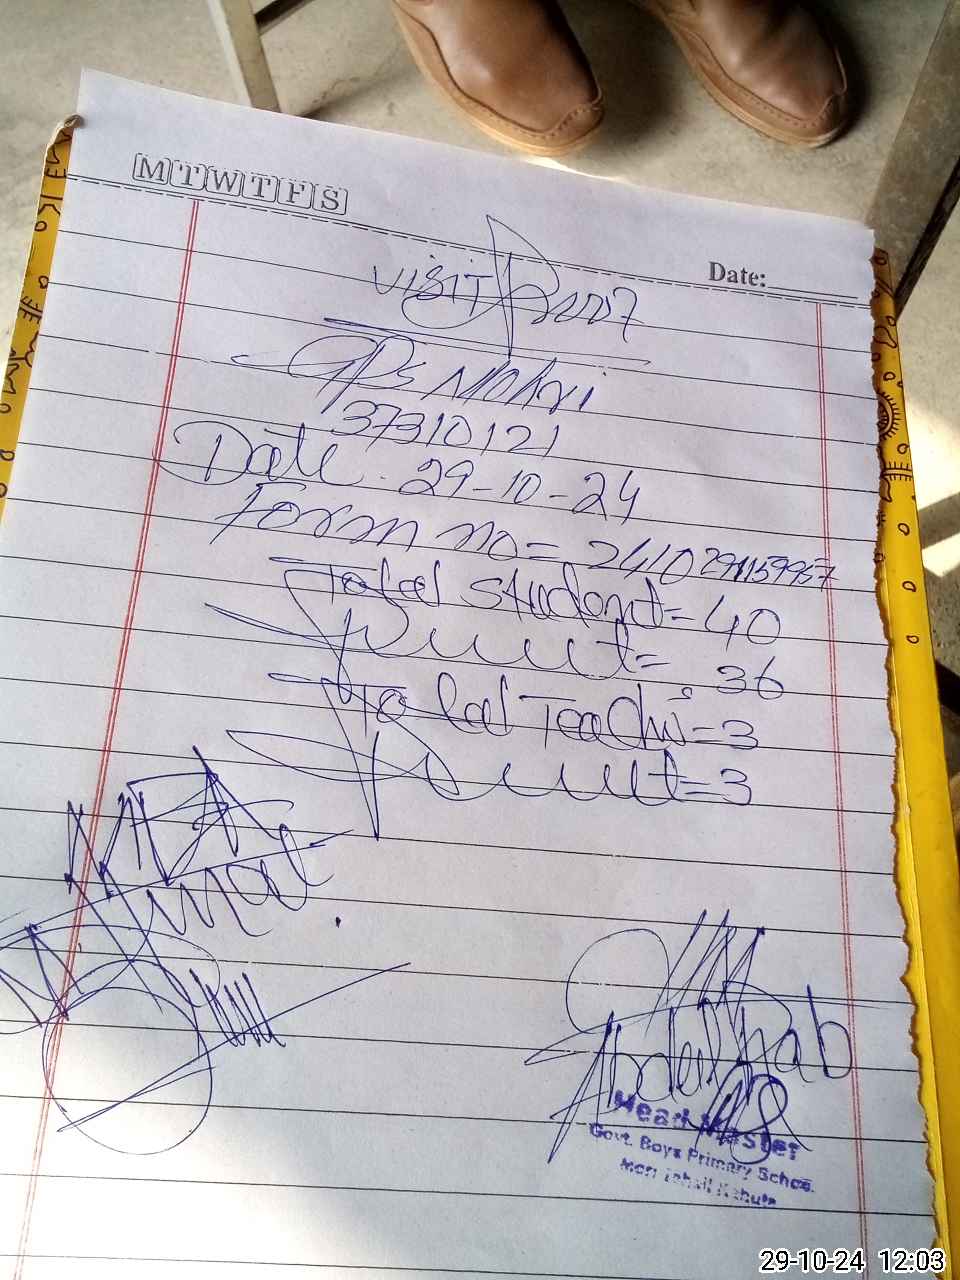 M T W T F S
Date:
Visit Proof
GPS Mohri
37310121
Date. 29-10-24
Form no = 241029115957
Total Student = 40
Present = 36
Total Teacher = 3
Present = 3
MEA
Head Master
Govt. Boys Primary School
Kahuta
29-10-24 12:03